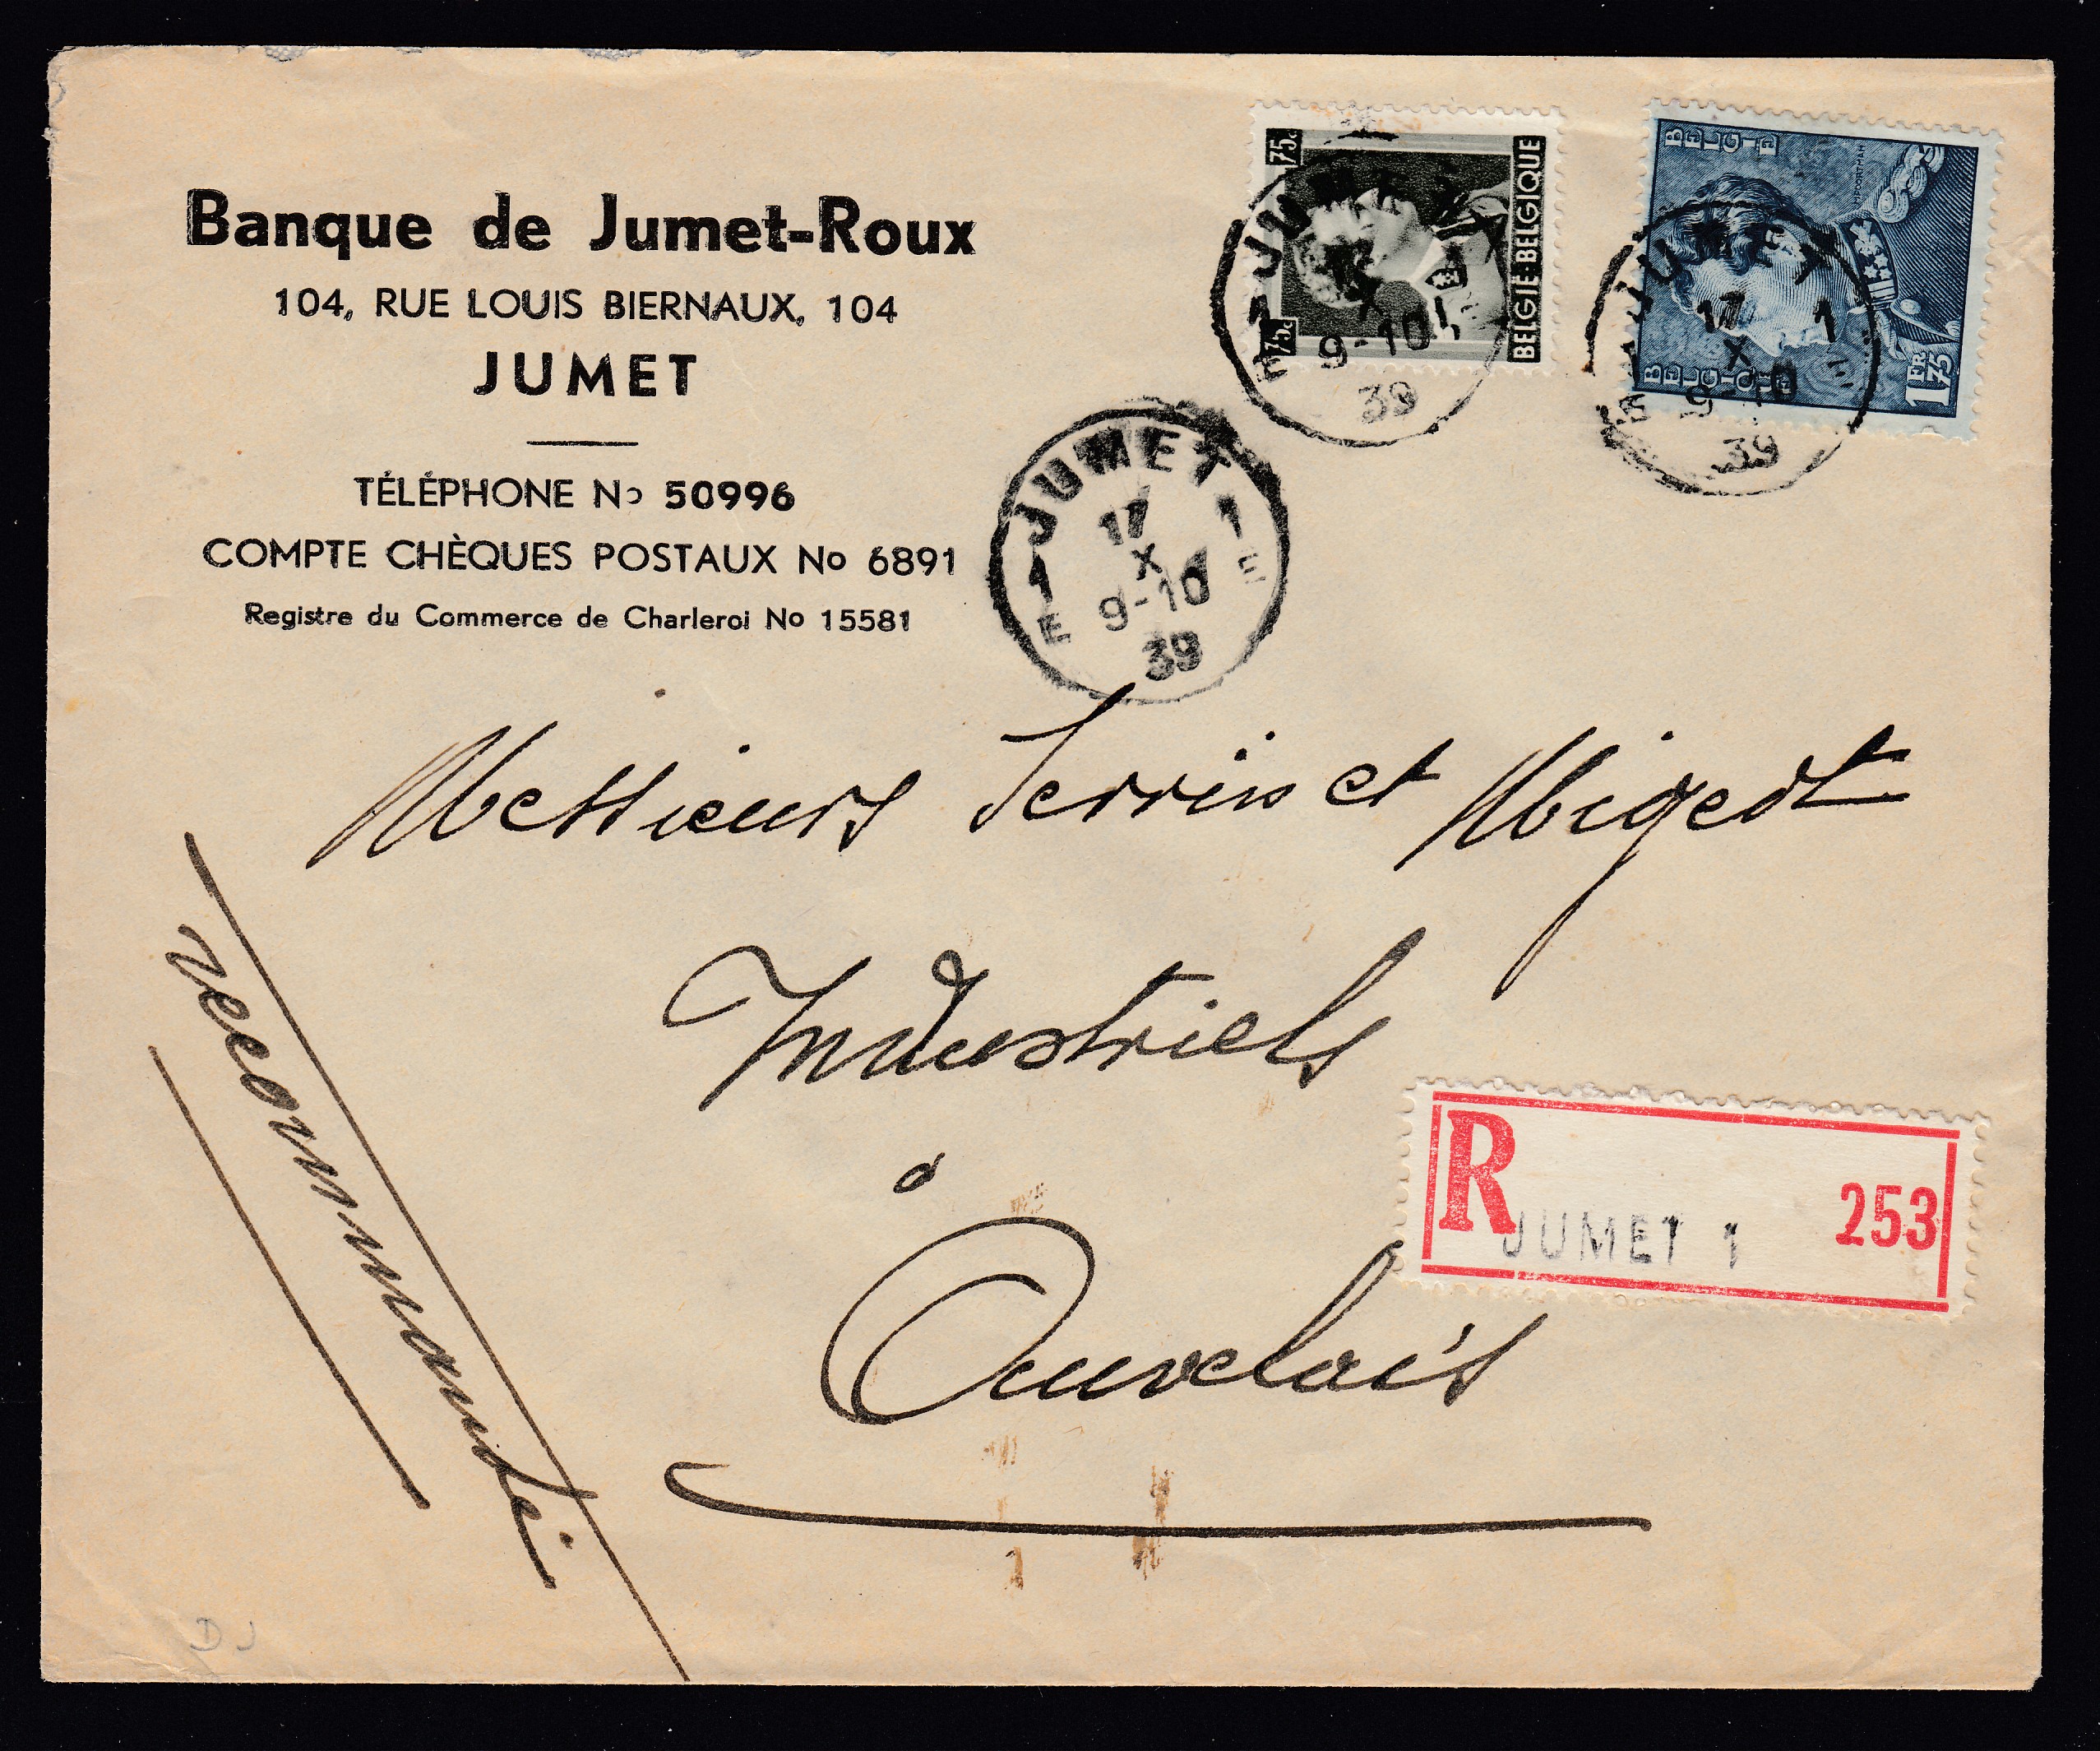 Banque de Jumet-Roux
104, RUE LOUIS BIERNAUX, 104
JUMET
TÉLÉPHONE No 50996
COMPTE CHÈQUES POSTAUX No 6891
Registre du Commerce de Charleroi No 15581
75c
75c
BELGIE-BELGIQUE
JUMET
1 1
17
X
9-10
E E
39
BELGIE
BELGIQUE
1FR 75
JUMET
17 1
X
9-10
E E
39
JUMET
1 17 1
X
E 9-10 E
39
Messieurs et Migeot
Industriels
à
Auvelais
recommandé
R
JUMET 1
253
DJ